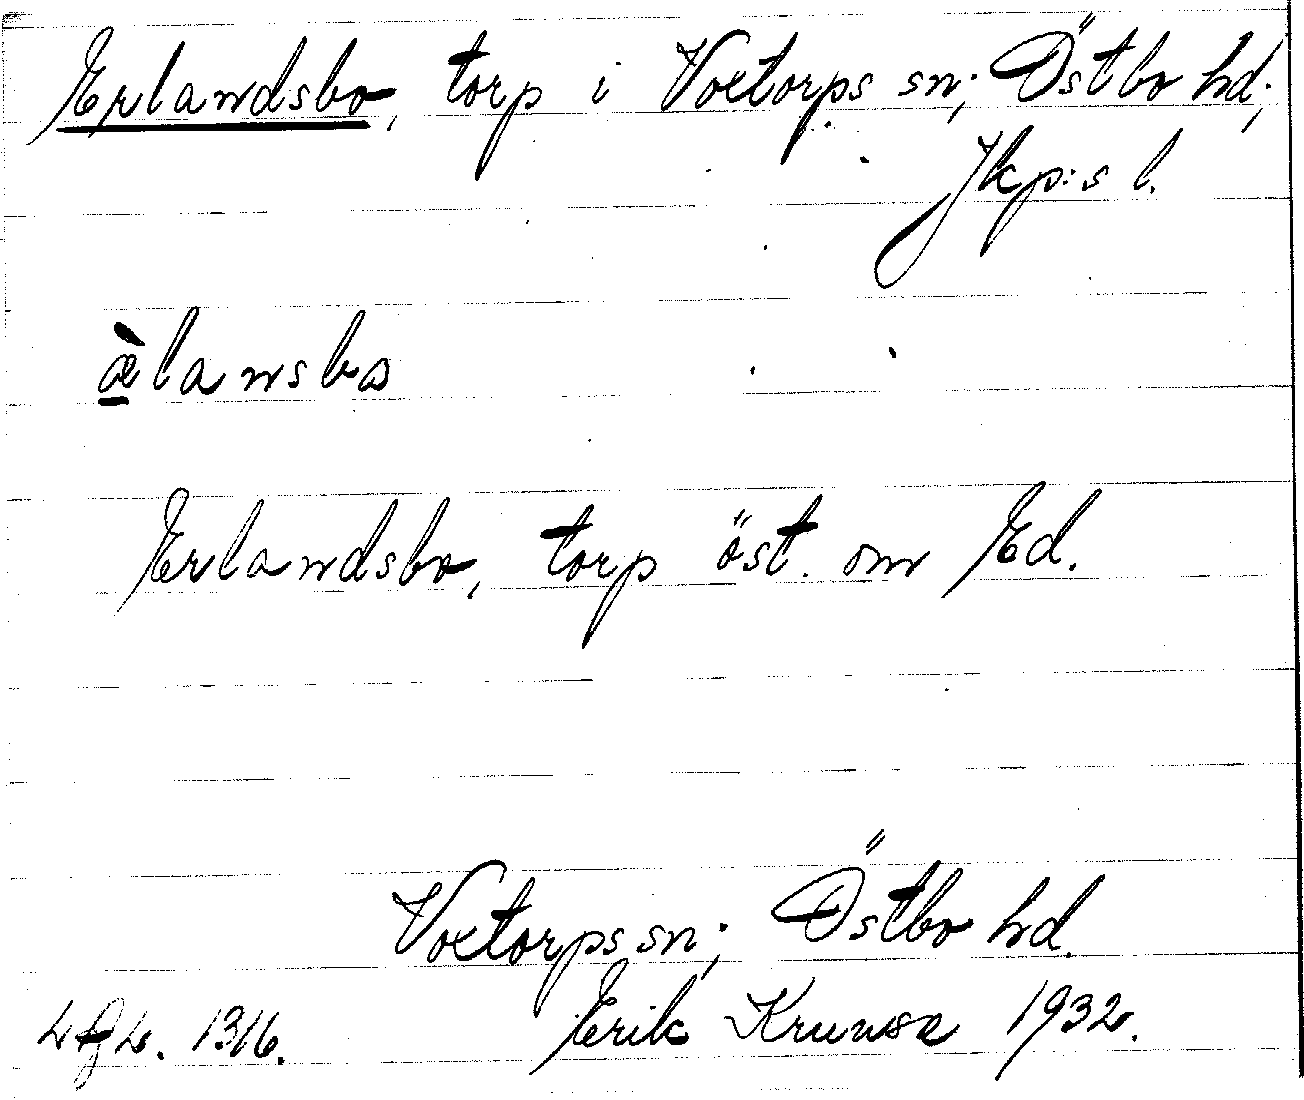 Erlandsbo, torp i Voxtorps sn; Östbo hd;
Jkp:s l.
æ̀lansbo
Erlandsbo, torp öst. om Ed.
Voxtorps sn; Östbo hd.
Erik Krunsa 1932.
1316.